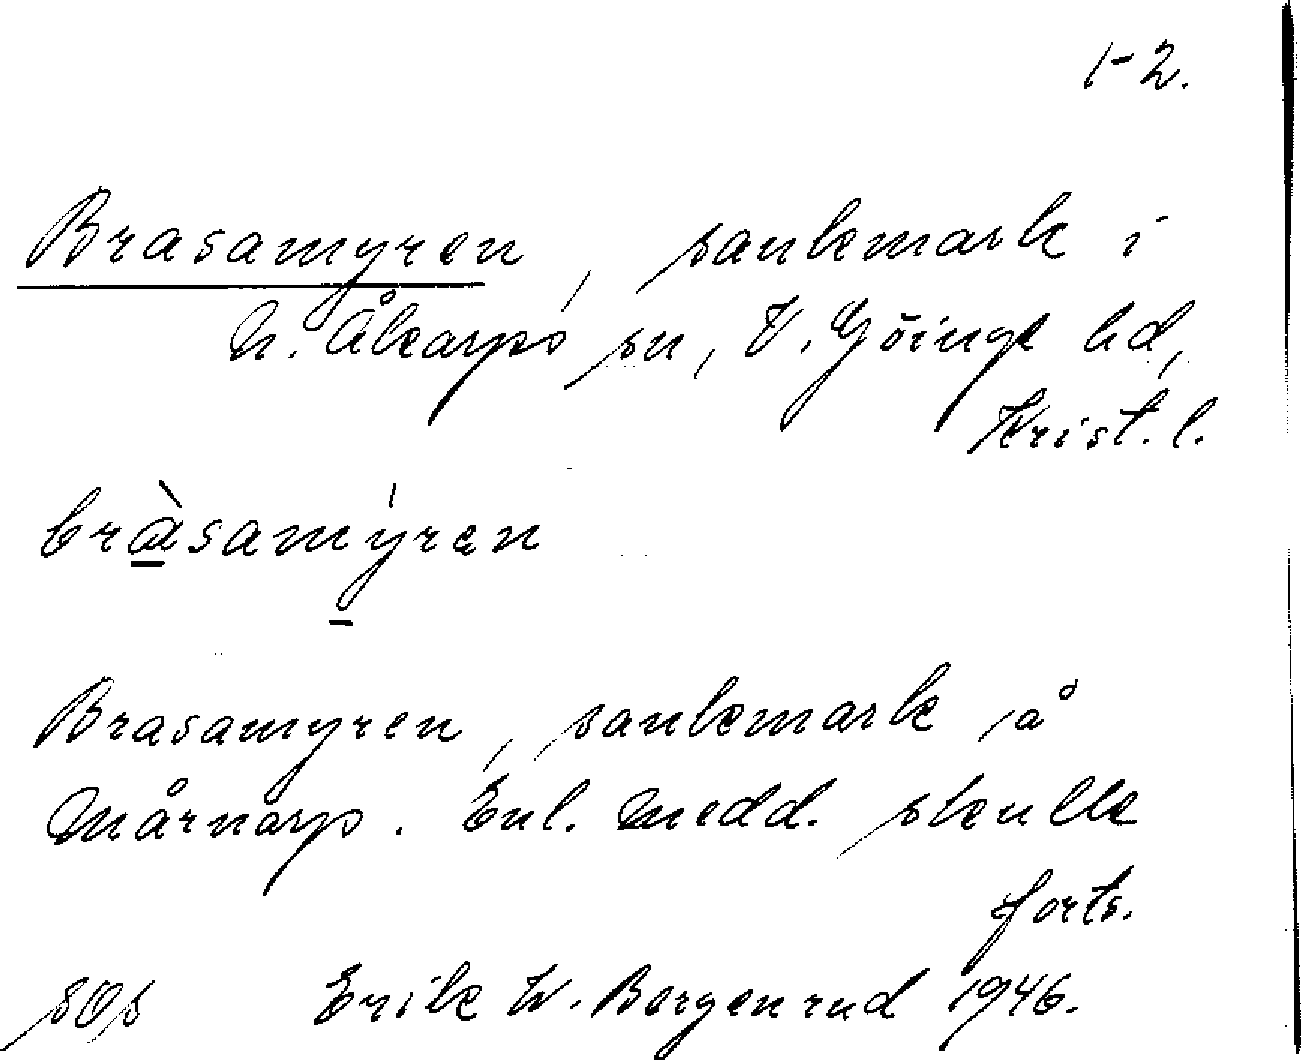 1-2.
Brasamyren, sankmark i
N. Åkarps sn, V. Göinge hd,
Krist. l.
bràsamýren
Brasamyren, sankmark å
Mårnarp. Enl. medd. skulle
forts.
sOs Erik W. Bergenrud 1946.